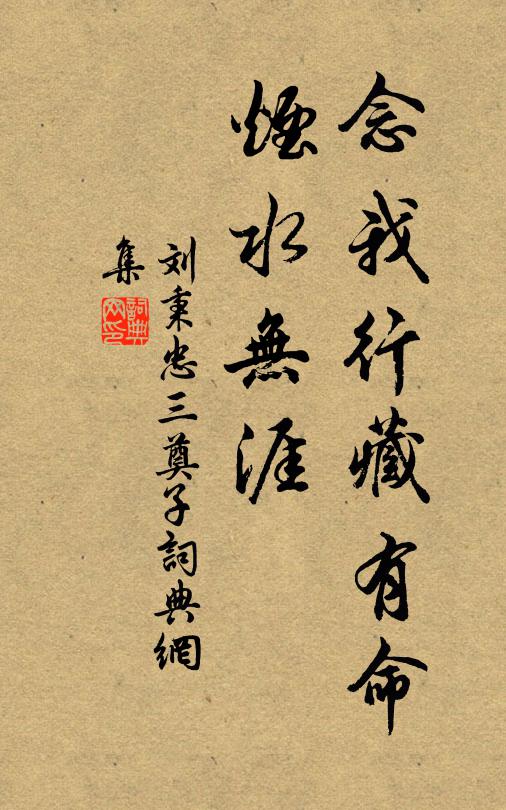 念我行藏有命
煙水無涯
刘秉忠三奠子詞典網
集
詞典
网印